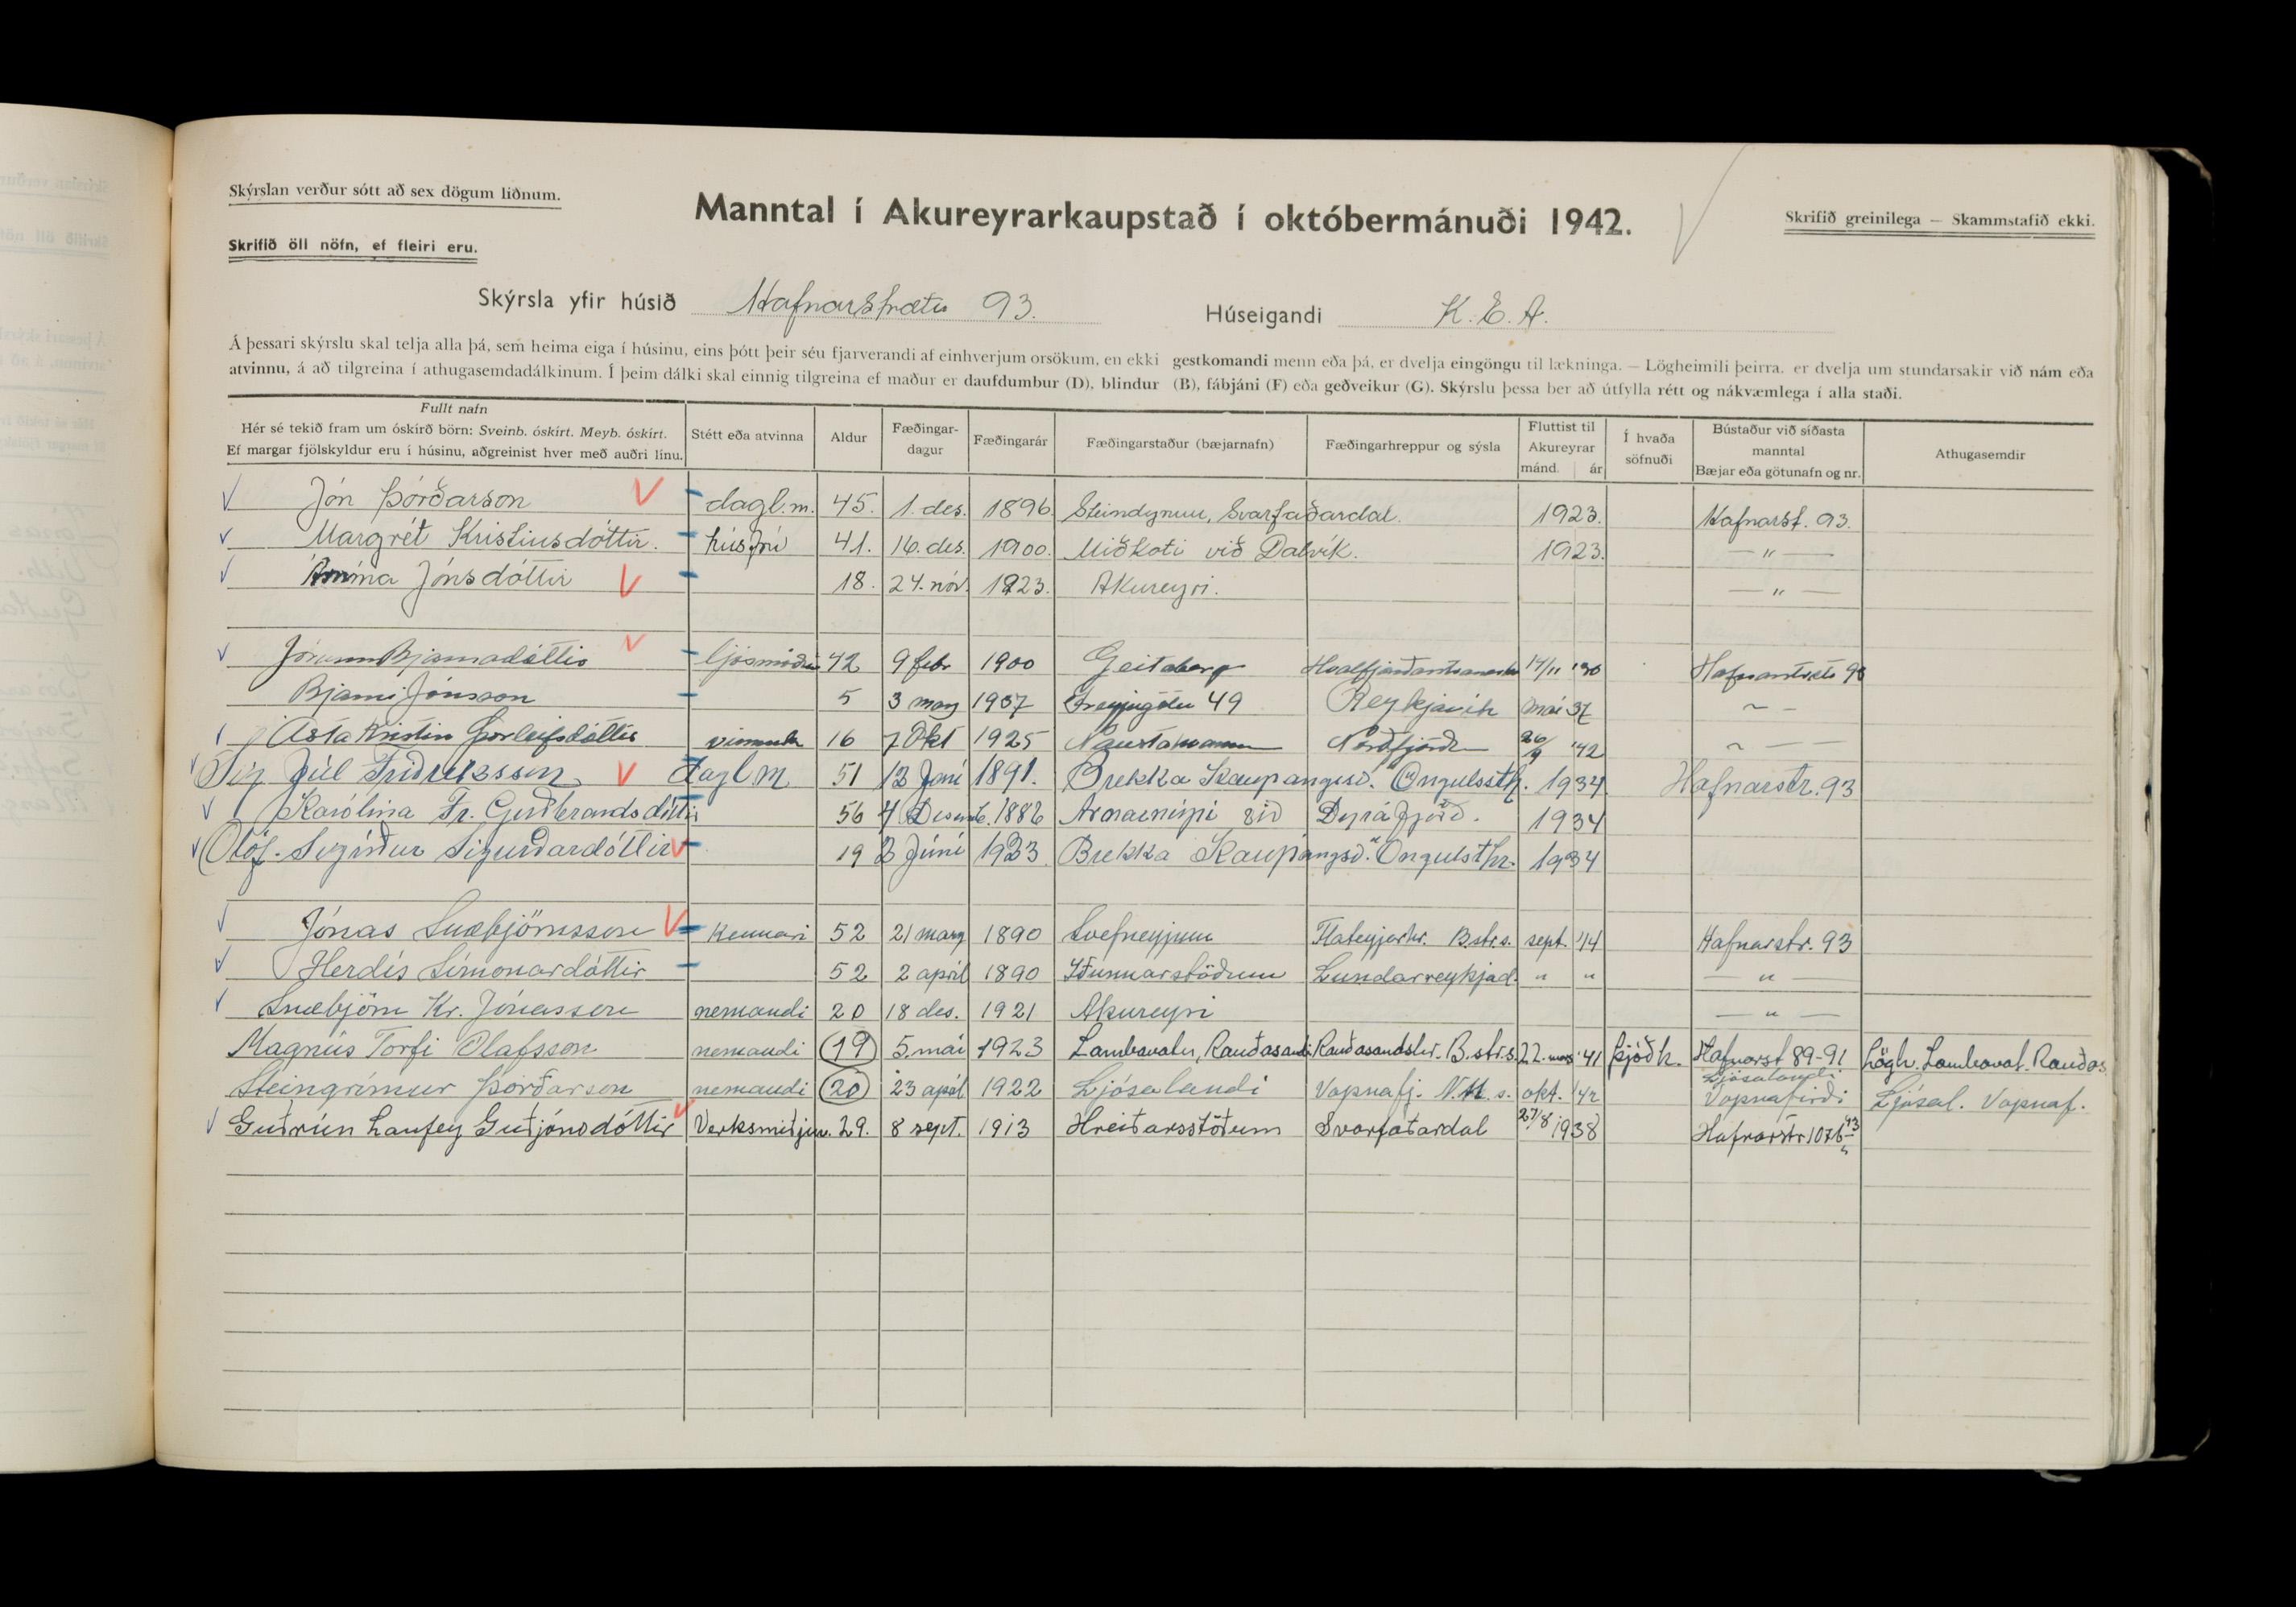 Skýrslan verður sótt að sex dögum liðnum.
Manntal í Akureyrarkaupstað í októbermánuði 1942.
Skrifið greinilega — Skammstafið ekki.
Skrifið öll nöfn, ef fleiri eru.
Skýrsla yfir húsið Hafnarstræti 93. Húseigandi K. E. A.
Á þessari skýrslu skal telja alla þá, sem heima eiga í húsinu, eins þótt þeir séu fjarverandi af einhverjum orsökum, en ekki gestkomandi menn eða þá, er dvelja eingöngu til lækninga. — Lögheimili þeirra. er dvelja um stundarsakir við nám eða
atvinnu, á að tilgreina í athugasemdadálkinum. Í þeim dálki skal einnig tilgreina ef maður er daufdumbur (D), blindur (B), fábjáni (F) eða geðveikur (G). Skýrslu þessa ber að útfylla rétt og nákvæmlega í alla staði.
Fullt nafn
Hér sé tekið fram um óskírð börn: Sveinb. óskírt. Meyb. óskírt.
Ef margar fjölskyldur eru í húsinu, aðgreinist hver með auðri línu.
Stétt eða atvinna
Aldur
Fæðingar-
dagur
Fæðingarár
Fæðingarstaður (bæjarnafn)
Fæðingarhreppur og sýsla
Fluttist til
Akureyrar
mánd. ár
Í hvaða
söfnuði
Bústaður við síðasta
manntal
Bæjar eða götunafn og nr.
Athugasemdir
Jón Þórðarson dagl.m. 45. 1. des. 1896 Steindyrum, Svarfaðardal. 1923. Hafnarst. 93.
Margrét Kristinsdóttir. húsfrú 41. 16. des. 1900. Miðkoti við Dalvík. 1923. — " —
Jónsdóttir 18. 24. nóv. 1923. Akureyri. — " —
Jórunn Bjarnadóttir ljósmóðir 42 9 febr 1900 Geitaberg 14/11 '30 93
Bjarni Jónsson 5 3 marz 1937 Freyjugötu 49 Reykjavík mai 37 ~ -
Ásta Kristín Þorleifsdóttir 16 7 Okt 1925 Norðfjörðr 26/9 '42 ~ — —
Sig Júl Friðriksson Dagl m 51 13 Júní 1891. Brekka Kaupangssv. Öngulssth. 1934 Hafnarstr. 93
Karólína Fr. Guðbrandsdóttir 56 4 Desemb. 1886 við Dýrafjörð. 1934
Ólöf. Sigríður Sigurðardóttir 19 3 Júní 1923 Brekka Kaupangsv. Öngulsthr. 1934
Jónas Snæbjörnsson Kennari 52 21 marz 1890 Svefneyjum Flateyjarhr. B.str.s. sept. '14 Hafnarstr. 93
Herdís Símonardóttir 52 2 apríl 1890 Iðunnarstöðum Lundarreykjad. " " — " —
Snæbjörn Kr. Jónasson nemandi 20 18 des. 1921 Akureyri — " —
Magnús Torfi Ólafsson nemandi 19 5. mai 1923 Lambavatn, Rauðasandi Rauðasandshr. B.str.s. 22. '41 Þjóðk. Hafnarst 89-91 Lögh. Lambavat. Rauðas.
Steingrímur Þórðarson nemandi 20 23 apríl 1922 Ljósalandi Vopnafj. N.M.s. okt. '42 Ljósalandi Vopnafirði Ljósal. Vopnaf.
Guðrún Laufey Guðjónsdóttir Verksmiðjuv. 29. 8 sept. 1913 Hreiðarsstöðum Svarfaðardal 27/8 1938 Hafnarstr 107b